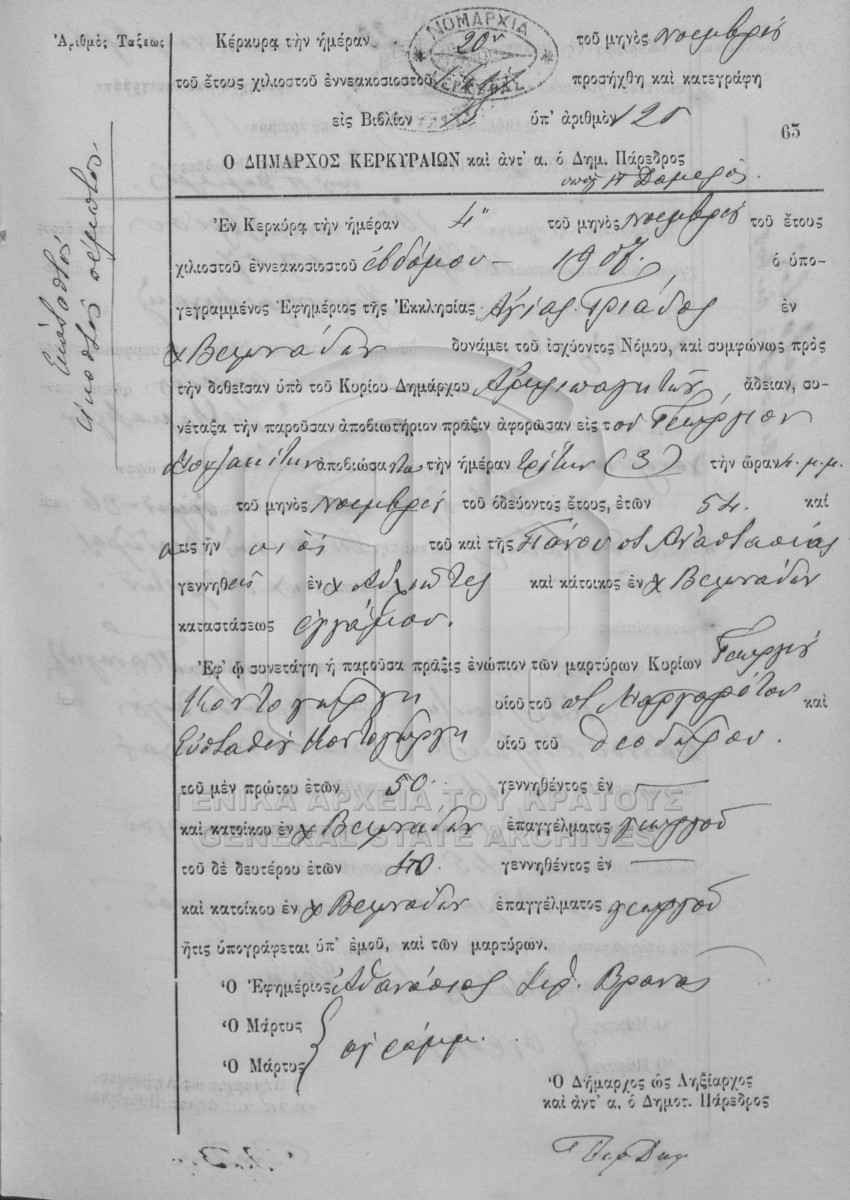 Ἀριθμὸς Τάξεως
Κέρκυρα τὴν ἡμέραν 20ην τοῦ μηνὸς Νοεμβρίου
τοῦ ἔτους χιλιοστοῦ ἐννεακοσιοστοῦ προσήχθη καὶ κατεγράφη
εἰς Βιβλίον ὑπ' ἀριθμὸν 125
65
ΝΟΜΑΡΧΙΑ
ΚΕΡΚΥΡΑΣ
Ο ΔΗΜΑΡΧΟΣ ΚΕΡΚΥΡΑΙΩΝ καὶ ἀντ' α. ὁ Δημ. Πάρεδρος
Ἑκατοστὸν
εἰκοστὸν πέμπτον
Ἐν Κερκύρᾳ τὴν ἡμέραν 4η τοῦ μηνὸς Νοεμβρίου τοῦ ἔτους
χιλιοστοῦ ἐννεακοσιοστοῦ ἑβδόμου – 1907 ὁ ὑπο-
γεγραμμένος Ἐφημέριος τῆς Ἐκκλησίας Ἁγίας Τριάδος ἐν
χ Βεμνάδων δυνάμει τοῦ ἰσχύοντος Νόμου, καὶ συμφώνως πρὸς
τὴν δοθεῖσαν ὑπὸ τοῦ Κυρίου Δημάρχου ἄδειαν, συ-
νέταξα τὴν παροῦσαν ἀποβιωτήριον πρᾶξιν ἀφορῶσαν εἰς τὸν Γεώργιον
ἀποβιώσαντα τὴν ἡμέραν τρίτην (3) τὴν ὥραν 4. μ.μ.
τοῦ μηνὸς Νοεμβρίου τοῦ ὁδεύοντος ἔτους, ἐτῶν 54. καὶ
οτις ἦν υἱὸς τοῦ καὶ τῆς Πάνου κ Ἀναστασίας
γεννηθεὶς ἐν χ Αὐλιῶτες καὶ κάτοικος ἐν χ Βεμνάδων
καταστάσεως ἐγγάμου.
Ἐφ' ᾧ συνετάγη ἡ παροῦσα πρᾶξις ἐνώπιον τῶν μαρτύρων Κυρίων Γεωργίου
Κοντογιώργη υἱοῦ τοῦ καὶ
Εὐσταθίου Κοντογιώργη υἱοῦ τοῦ Θεοδώρου.
τοῦ μὲν πρώτου ἐτῶν 50 γεννηθέντος ἐν —
ΓΕΝΙΚΑ ΑΡΧΕΙΑ ΤΟΥ ΚΡΑΤΟΥΣ
καὶ κατοίκου ἐν χ Βεμνάδων ἐπαγγέλματος γεωργοῦ
GENERAL STATE ARCHIVES
τοῦ δὲ δευτέρου ἐτῶν 40. γεννηθέντος ἐν —
καὶ κατοίκου ἐν χ Βεμνάδων ἐπαγγέλματος γεωργοῦ
ἥτις ὑπογράφεται ὑπ' ἐμοῦ, καὶ τῶν μαρτύρων.
Ὁ Ἐφημέριος Ἀθανάσιος Βρανᾶς
Ὁ Μάρτυς
Ὁ Μάρτυς } ἀγράμμ.
Ὁ Δήμαρχος ὡς Ληξίαρχος
καὶ ἀντ' α. ὁ Δημοτ. Πάρεδρος